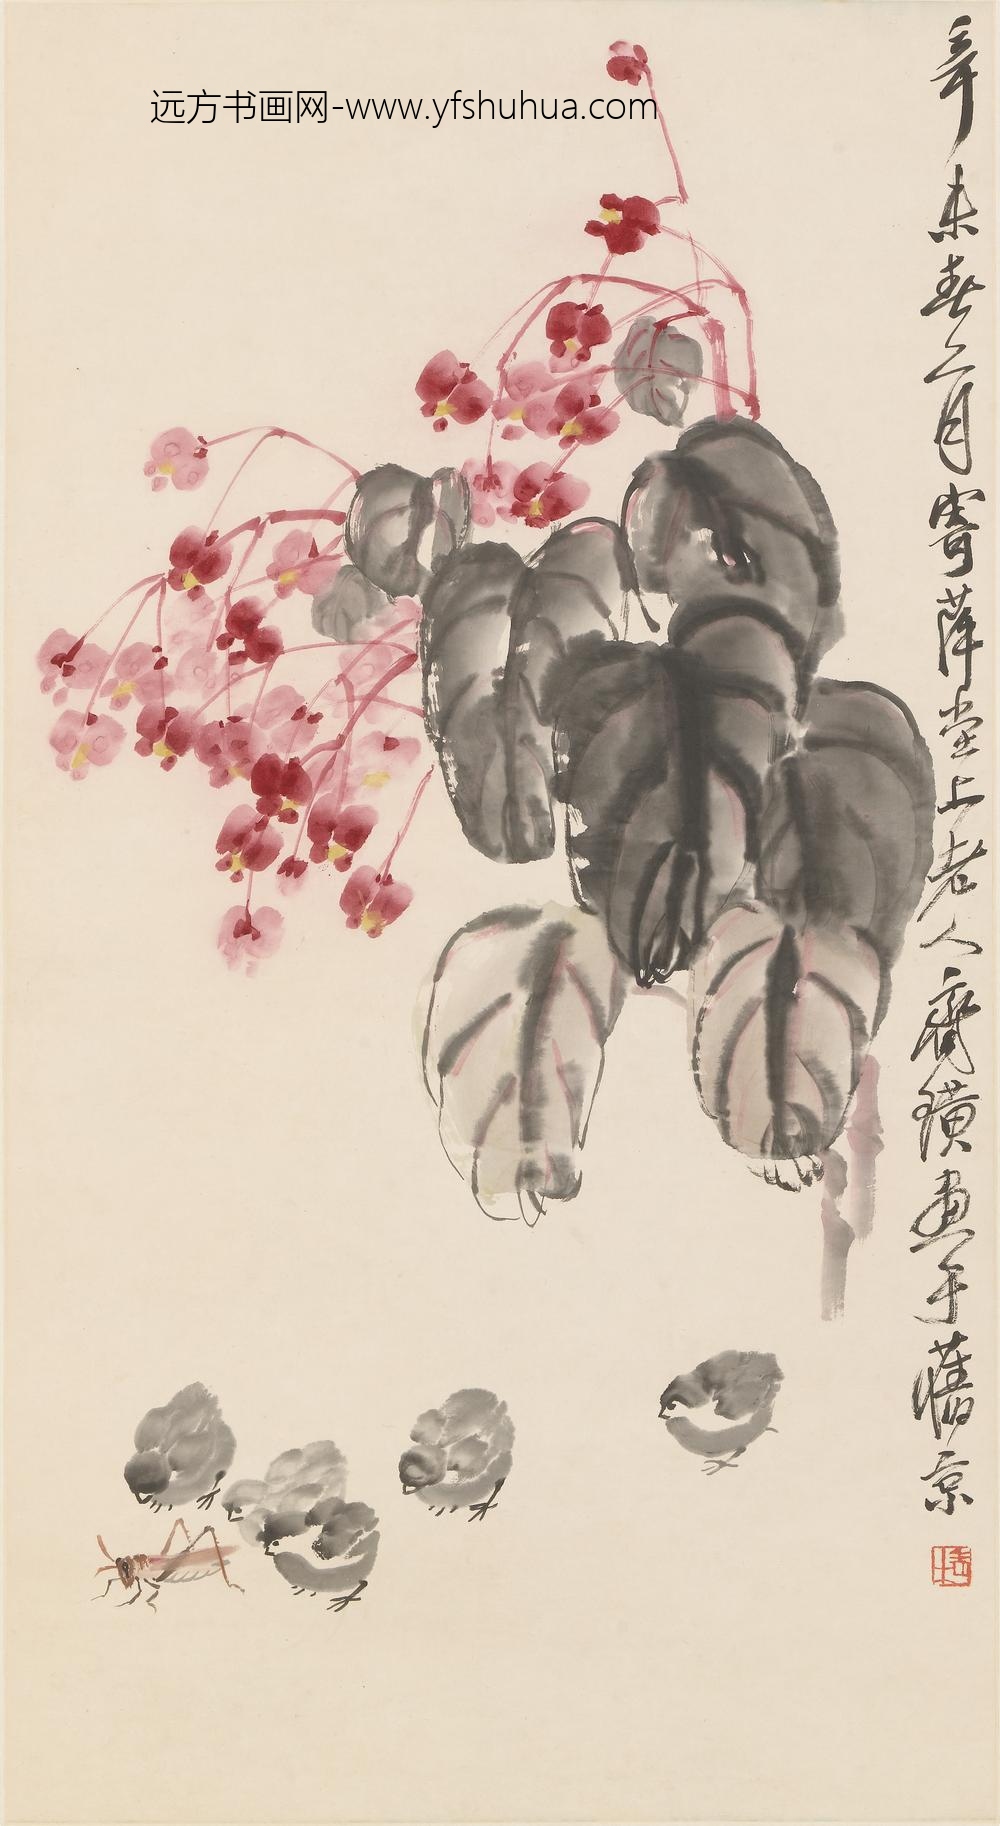 远方书画网-www.yfshuhua.com
辛未春二月寄萍堂上老人齊璜畫于舊京